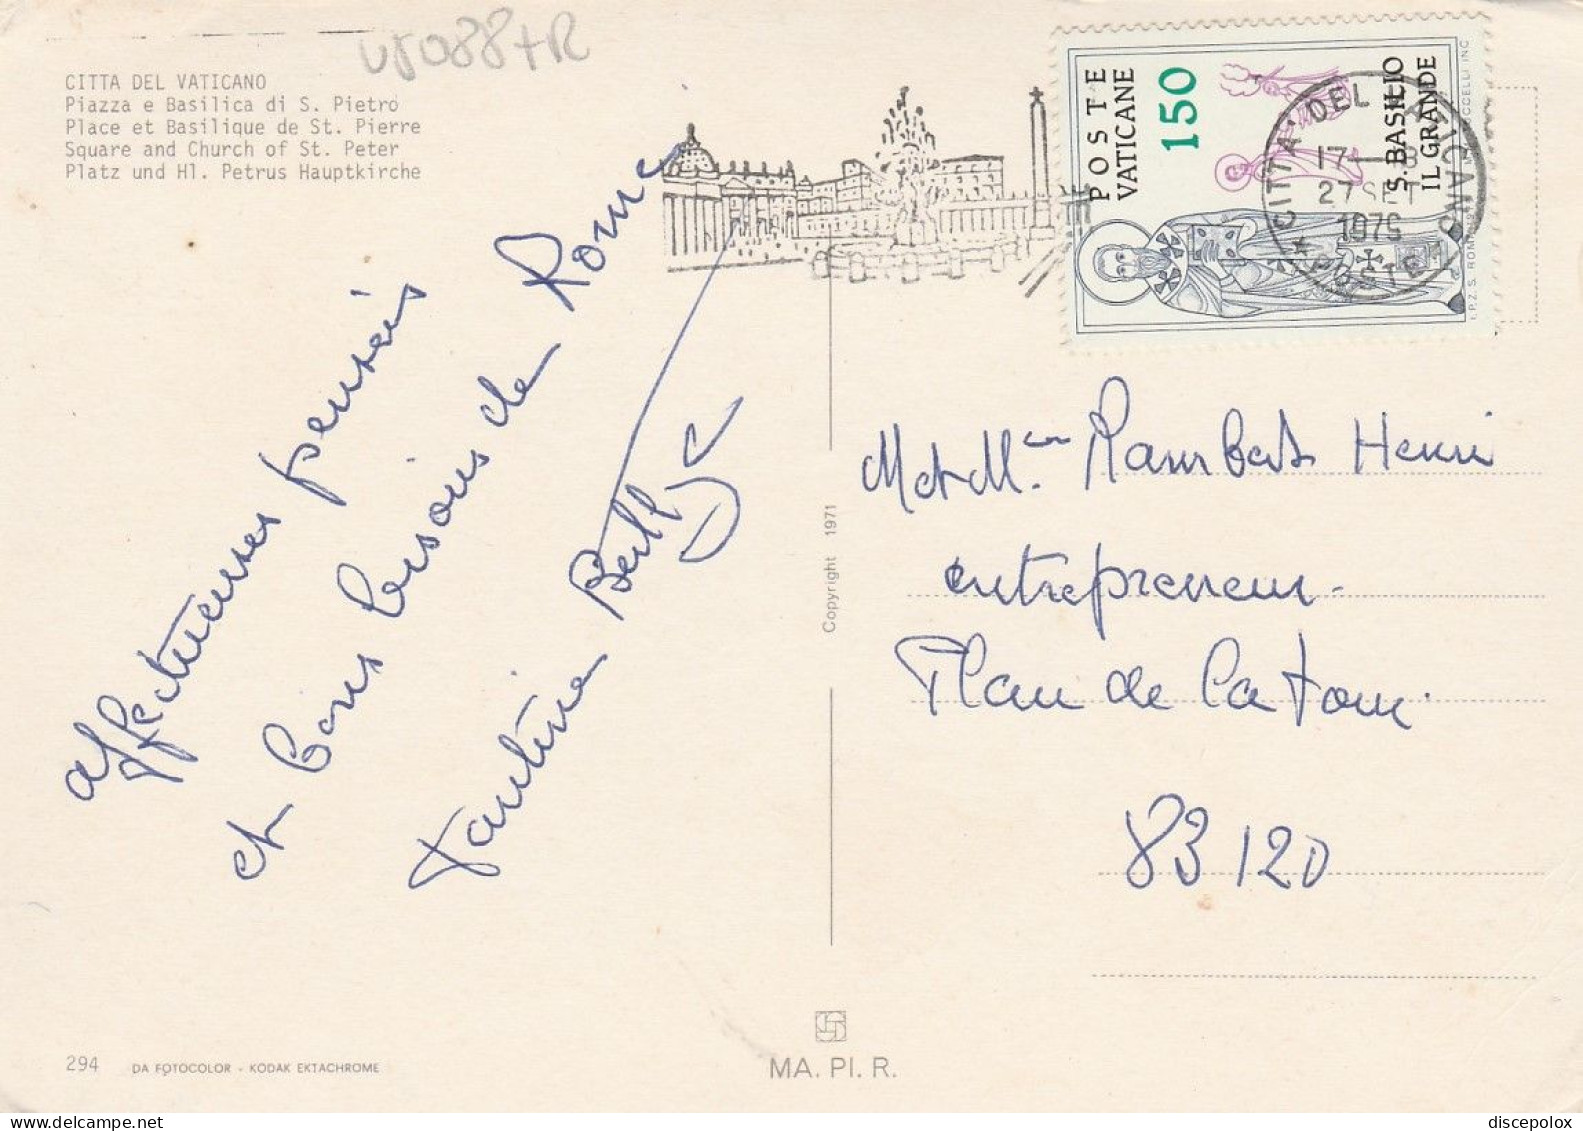 CITTA DEL VATICANO
Piazza e Basilica di S. Pietro
Place et Basilique de St. Pierre
Square and Church of St. Peter
Platz und Hl. Petrus Hauptkirche
affectueuses pensées
et bons baisons de Rome
POSTE
VATICANE
150
S. BASILIO
IL GRANDE
I.P.Z.S. ROMA
CITTA DEL VATICANO
17
27 SET
1976
POSTE
M et Mme Rambert Henri
entrepreneur.
Plan de la tour.
83120
Copyright 1971
294
DA FOTOCOLOR - KODAK EKTACHROME
MA. PI. R.
discepolox